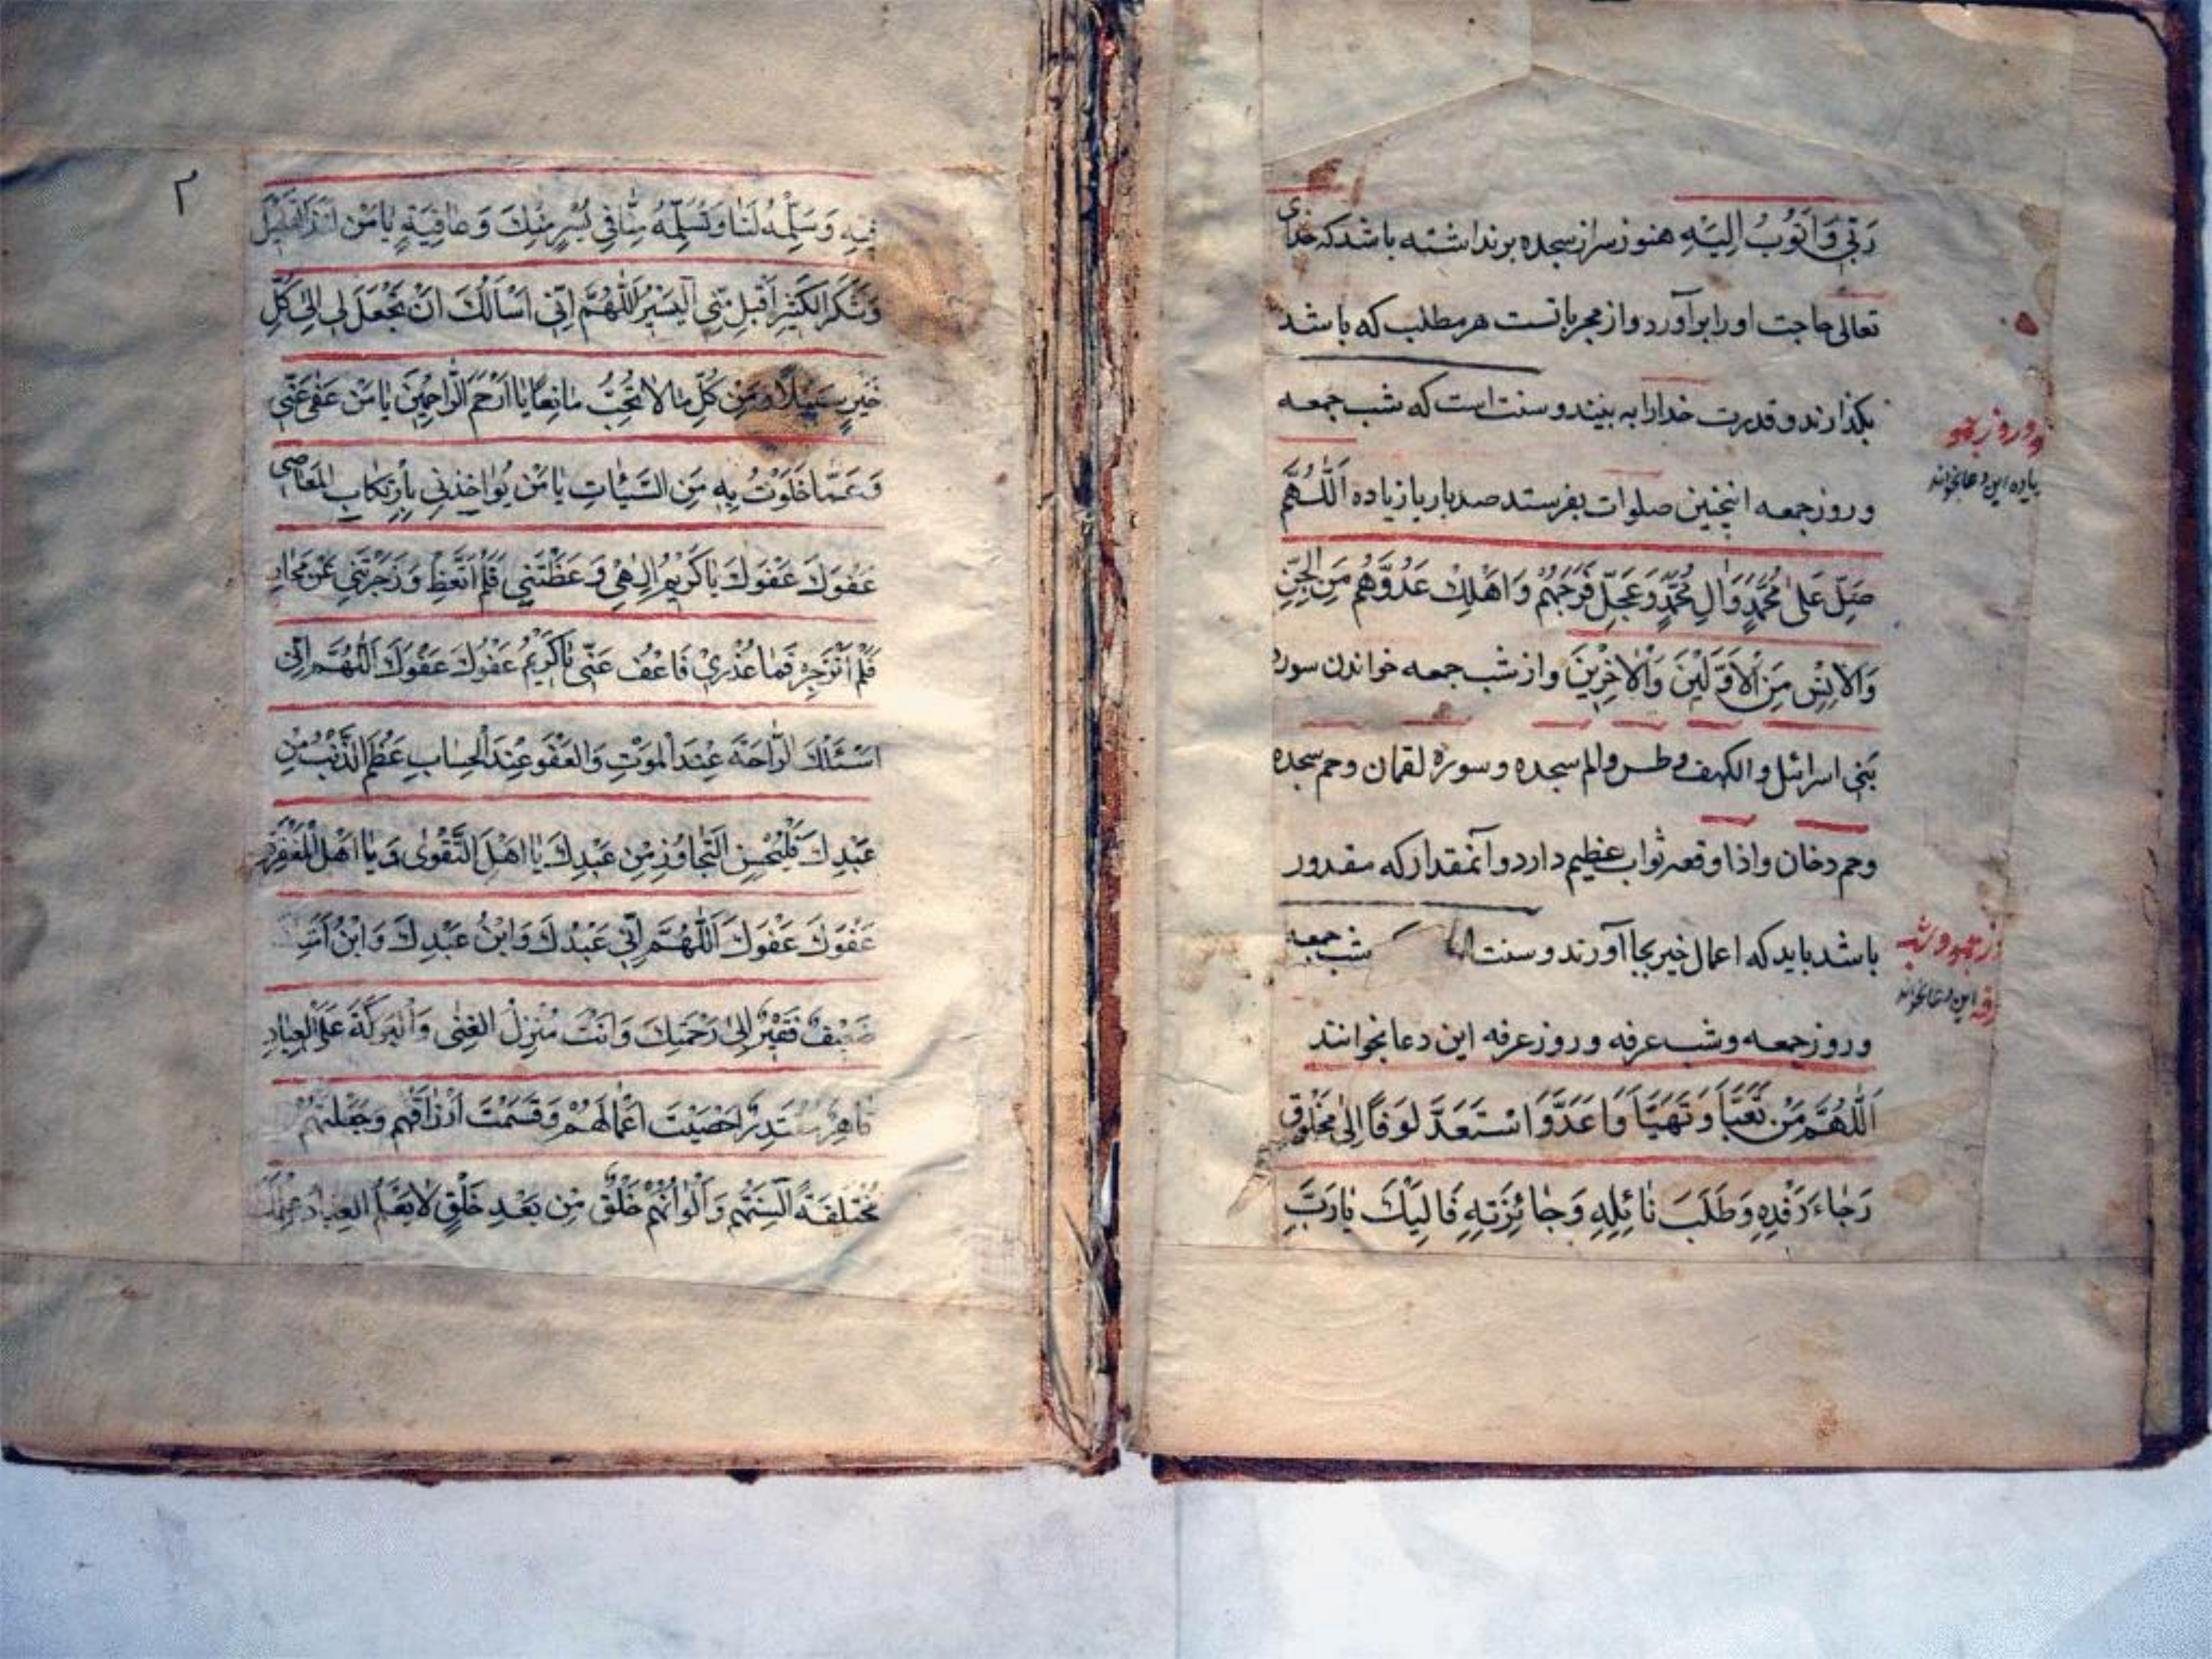 رَبّي وَاَتُوبُ اِلَيْهِ هنوز سر از سجده برنداشته باشد که خدای
تعالی حاجت او را برآورد و از مجرباتست هر مطلب که باشد
بکذارند و قدرت خدا را به بینند و سنت است که شب جمعه
و روز جمعه اینچنین صلوات بفرستد صد بار یا زیاده اَللّٰهُمَّ
صَلِّ عَلىٰ مُحَمَّدٍ وَاٰلِ مُحَمَّدٍ وَعَجِّلْ فَرَجَهُمْ وَاَهْلِكْ عَدُوَّهُمْ مِنَ الْجِنِّ
وَالْاِنْسِ مِنَ الْاَوَّلَيْنَ وَالْاٰخِرْيْنَ و از شب جمعه خواندن سوره
بَنی اسرائیل و الکهف و طس و الم سجده و سوره لقمان و حم سجده
و حم دخان و اذا وقعه ثواب عظیم دارد و آنمقدار که مقدور
باشد باید که اعمال خیر بجا آورند و سنت شب جمعه
و روز جمعه و شب عرفه و روز عرفه این دعا بخوانند
اَللّٰهُمَّ مَنْ تَعَبَّاَ وَتَهَيَّاَ وَاَعَدَّ وَاسْتَعَدَّ لِوَفاً اِلىٰ مَخْلُوقٍ
رَجٰاءَ رَفْدِهِ وَطَلَبَ نٰائِلِهِ وَجٰائِزَتِهِ فَاِلَيْكَ يٰارَبِّ
و روز جمعه
این دعا بخواند
این دعا بخواند
٢
فيهِ وَسَلِّمْهُ لَنٰا وَتَسَلَّمْهُ مِنّٰا في يُسْرٍ مِنْكَ وَعٰافِيَةٍ يٰا مَنْ
وَشَكَرَ الْكَثيْرَ اَقْبِلْ مِنّي الْيَسيْرَ اَللّٰهُمَّ اِنّي اَسْاَلُكَ اَنْ تَجْعَلَ لي اِلىٰ كُلِّ
خَيْرٍ سَبيْلاً وَمِنْ كُلِّ مٰا لاٰ تُحِبُّ مٰانِعًا يٰا اَرْحَمَ الرّٰاحِميْنَ يٰا مَنْ عَفٰى عَنّي
وَعَمّٰا خَلَوْتُ بِهِ مِنَ السَّيِّئٰاتِ يٰا مَنْ يُؤٰاخِذْني بِاِرْتِكٰابِ الْمَعٰاصي
عَفْوَكَ عَفْوَكَ يٰا كَريْمُ اِلٰهي وَعَظْتَنِي فَلَمْ اَتَّعِظْ وَزَجَرْتَني عَنْ
فَلَمْ اَنْزَجِرْ فَمٰا عُذْري فَاعْفُ عَنّي يٰا كَريْمُ عَفْوَكَ عَفْوَكَ اَللّٰهُمَّ اِنّي
اَسْئَلُكَ الرّٰاحَةَ عِنْدَ الْمَوْتِ وَالْعَفْوَ عِنْدَ الْحِسٰابِ عَظُمَ الذَّنْبُ مِنْ
عَبْدِكَ فَلْيَحْسُنِ التَّجٰاوُزُ مِنْ عَبْدِكَ يٰا اَهْلَ التَّقْوىٰ وَيٰا اَهْلَ الْمَغْفِرَةِ
عَفْوَكَ عَفْوَكَ اَللّٰهُمَّ اِنّي عَبْدُكَ وَابْنُ عَبْدِكَ وَابْنُ
ضَعيْفٌ فَقيْرٌ اِلىٰ رَحْمَتِكَ وَاَنْتَ مُنْزِلُ الْغِنىٰ وَالْبَرَكَةَ عَلَى الْعِبٰادِ
قٰاهِرٌ مُقْتَدِرٌ اَحْصَيْتَ اَعْمٰالَهُمْ وَقَسَمْتَ اَرْزٰاقَهُمْ وَجَعَلْتَهُمْ
مُخْتَلِفَةً اَلْسِنَتُهُمْ وَاَلْوٰانُهُمْ خَلْقٌ مِنْ بَعْدِ خَلْقٍ لاٰ يَعْلَمُ الْعِبٰادُ